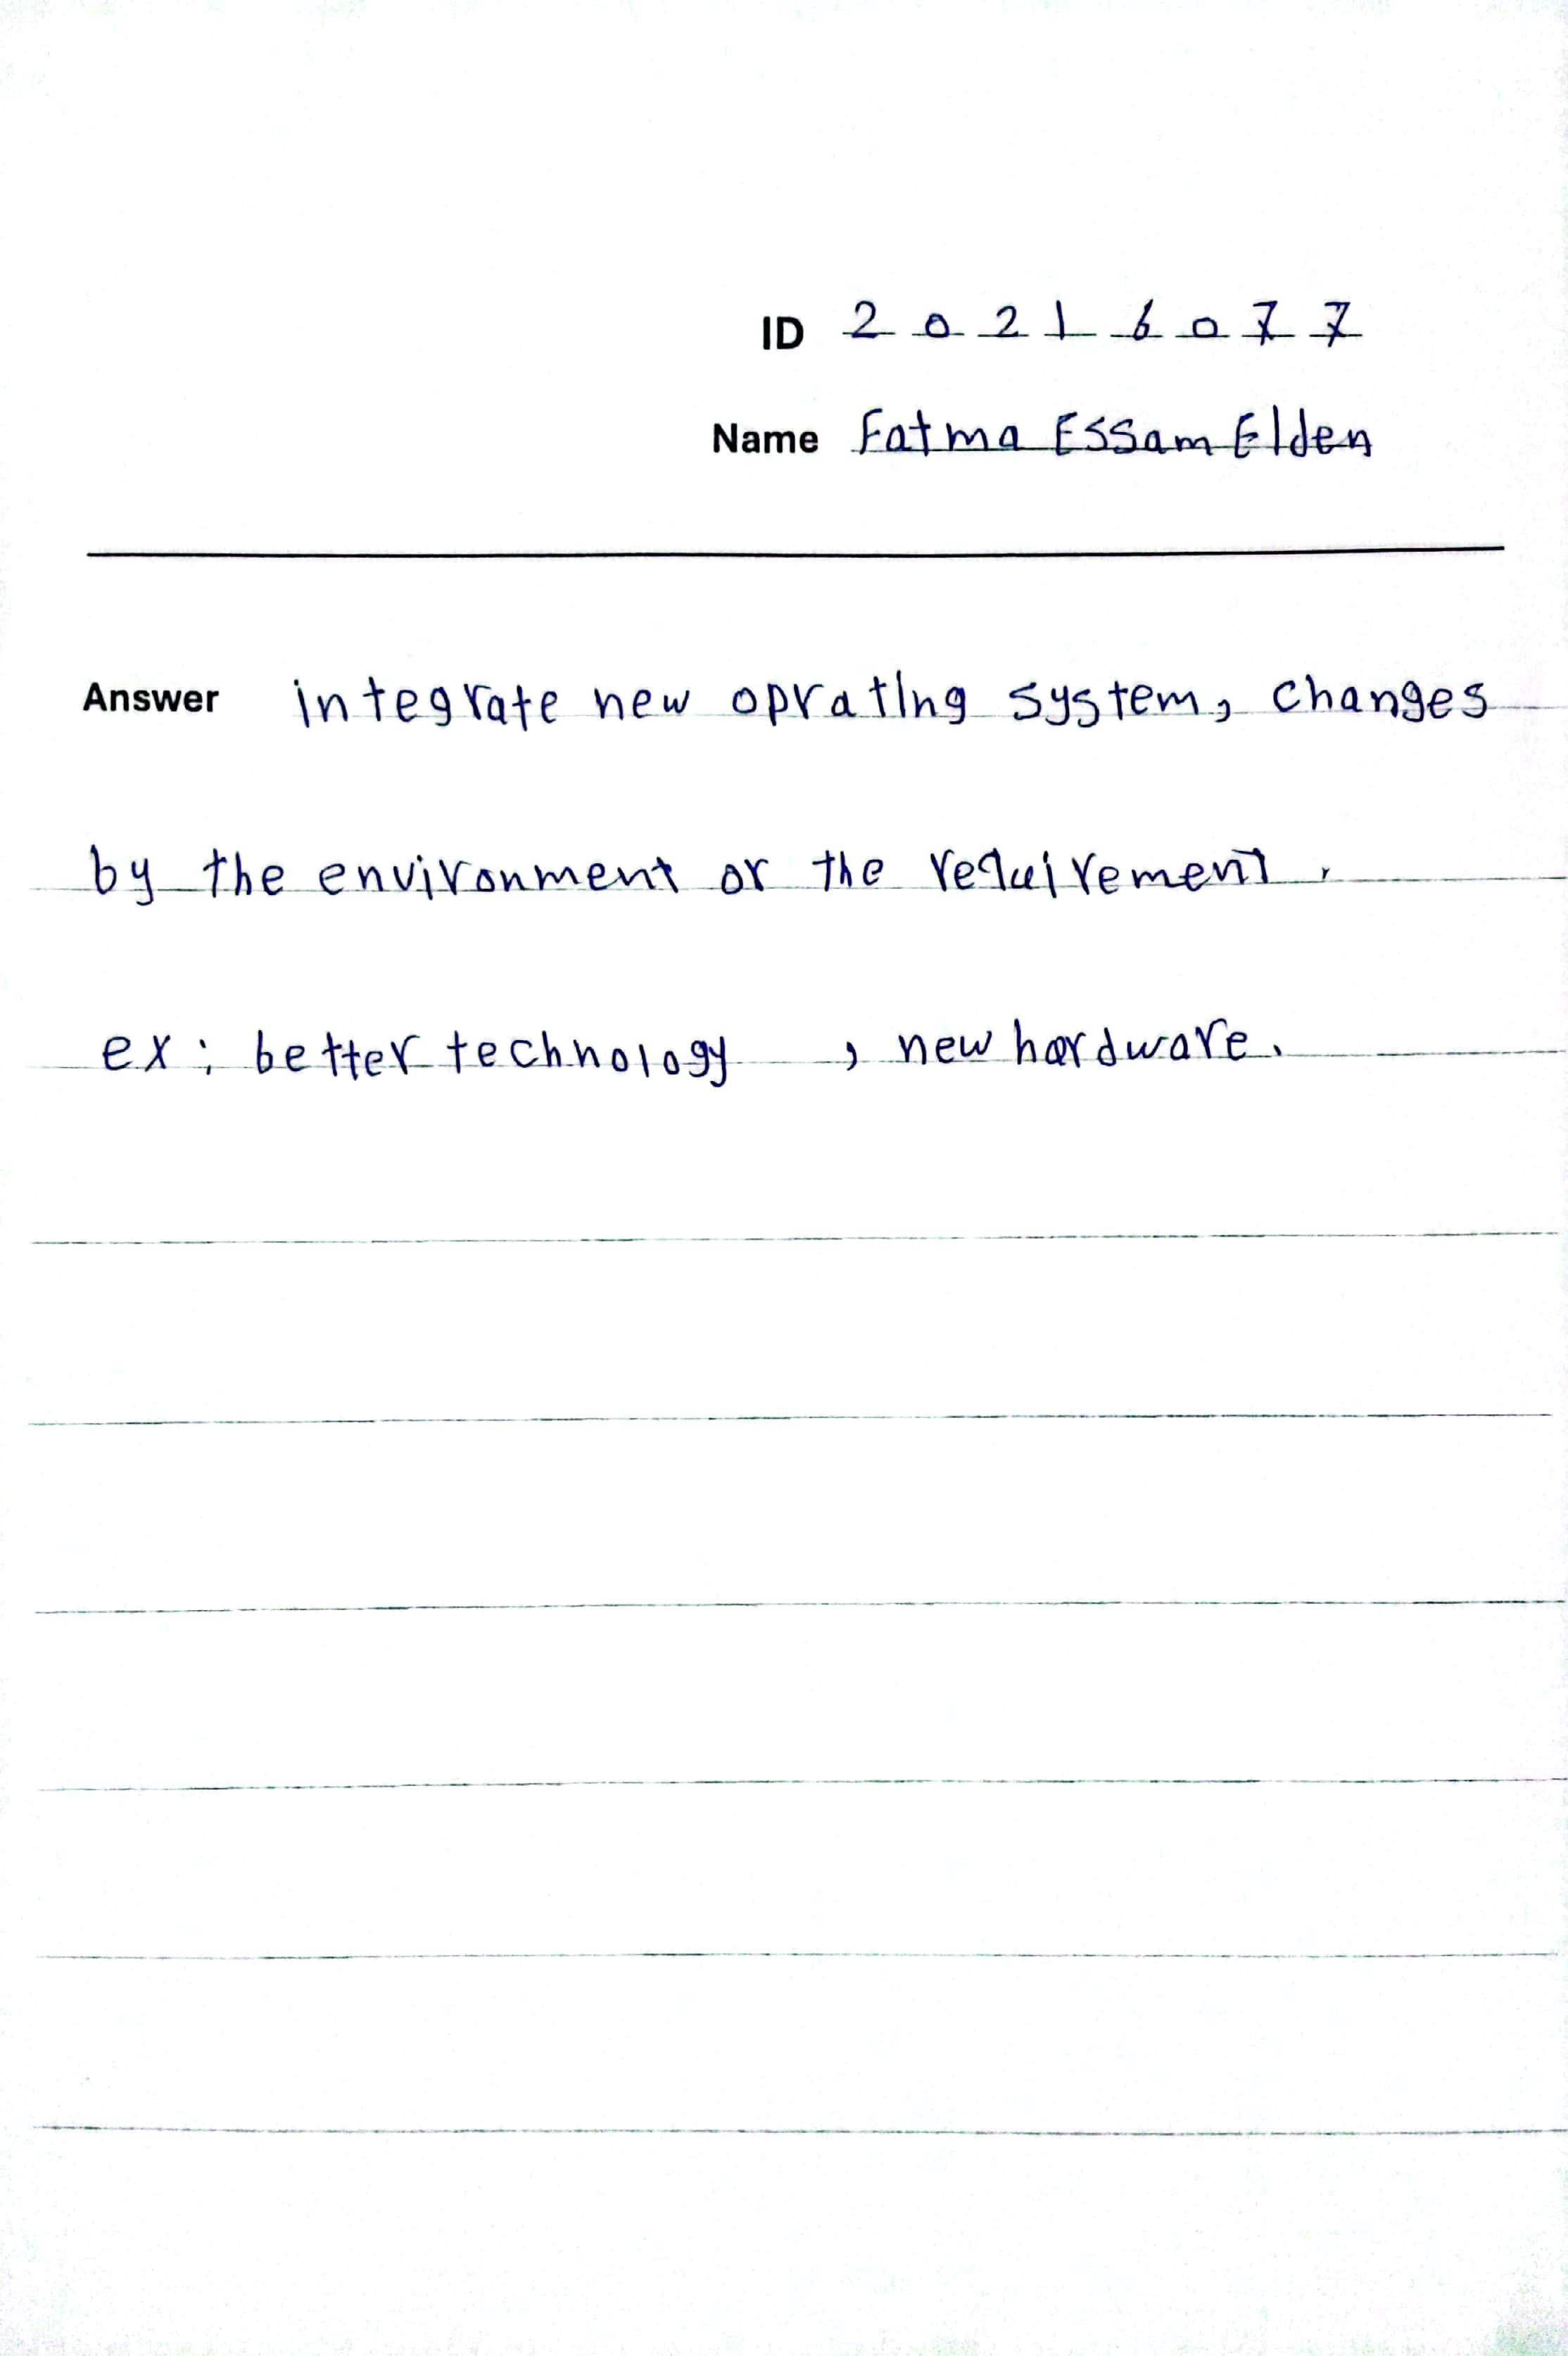 ID 2 0 2 1 6 0 7 7
Name Fatma Essam Elden
Answer integrate new oprating system, changes
by the environment or the requirement.
ex: better technology , new hardware.